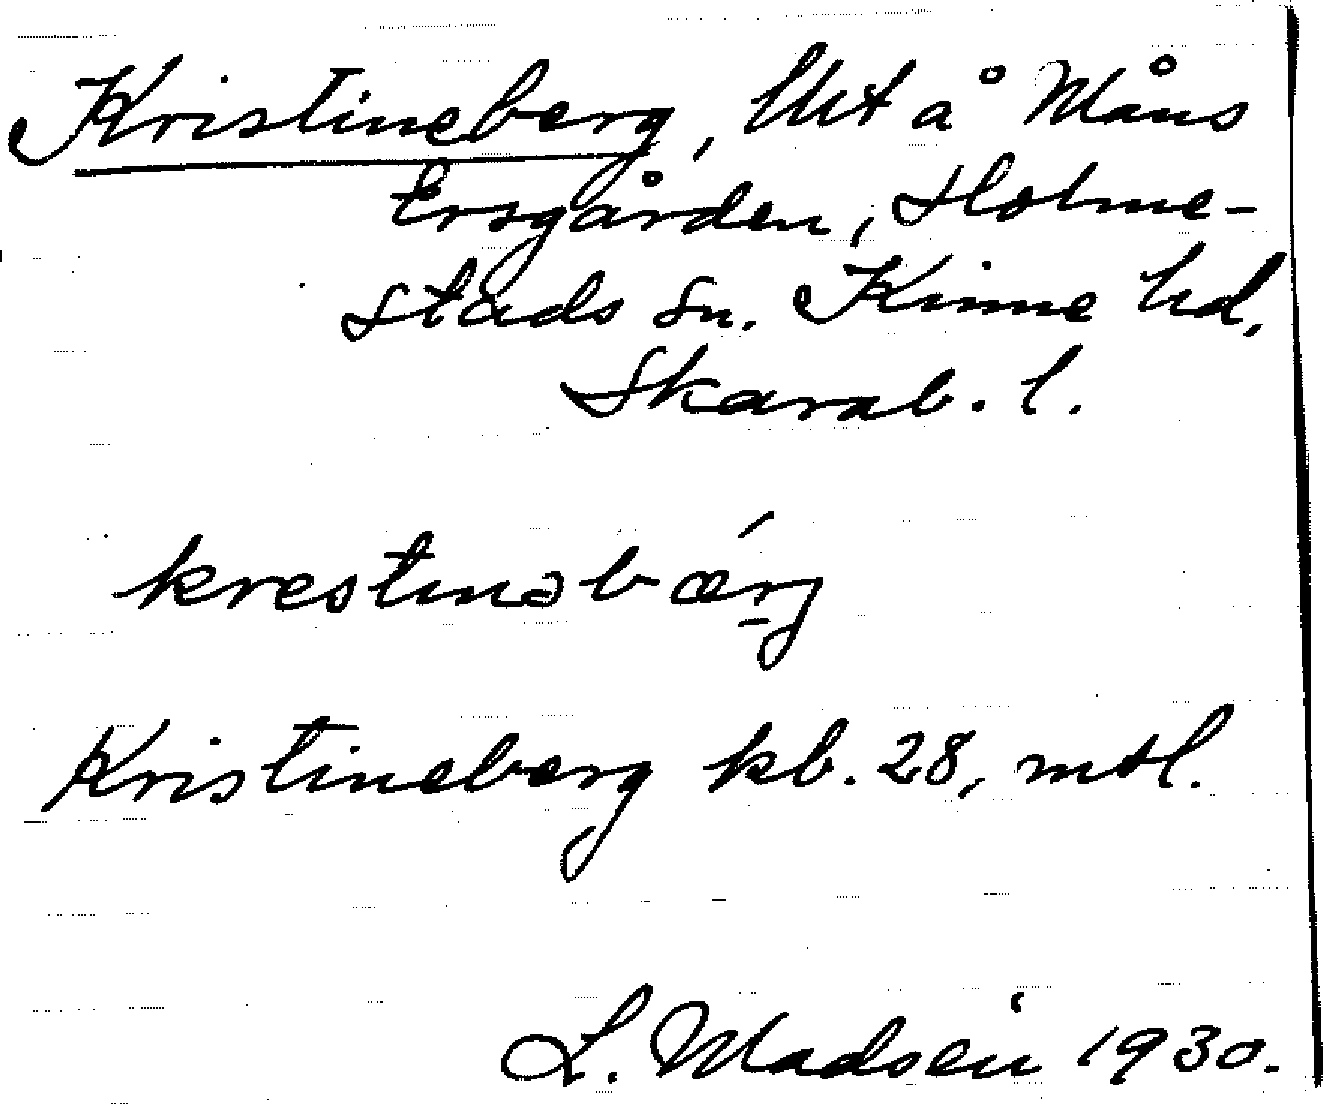 Kristineberg, lht å Måns
Ersgården, Holme-
stads sn. Kinne hd,
Skarab. l.
krestinəbærj
Kristineberg kb. 28, mtl.
L. Madsén 1930.